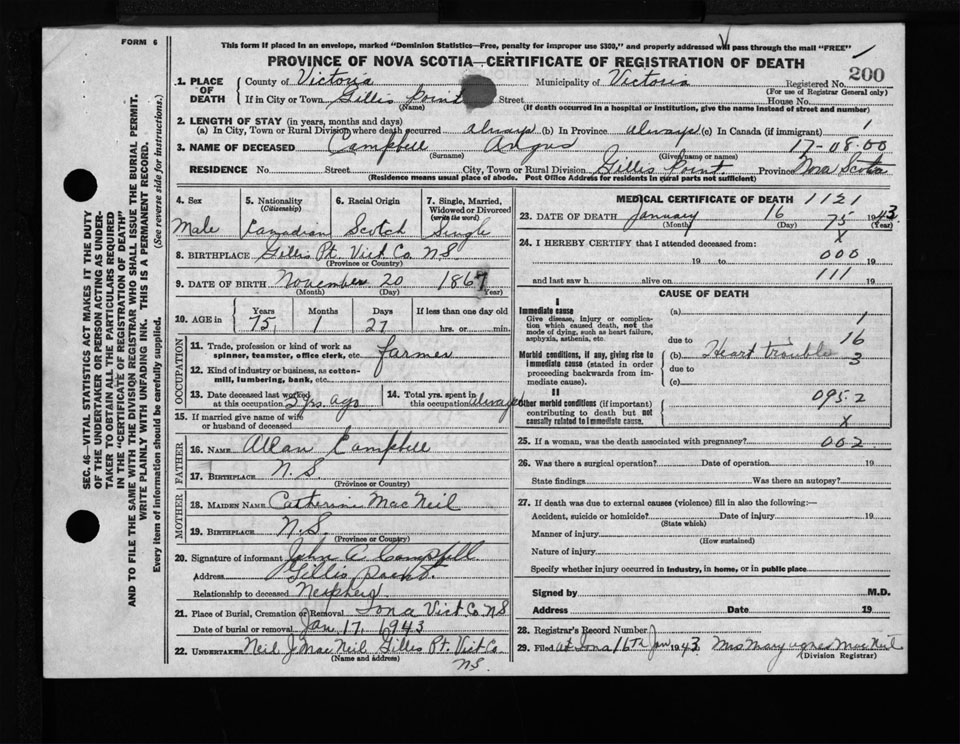 FORM 6
This form if placed in an envelope, marked "Dominion Statistics—Free, penalty for improper use $300," and properly addressed will pass through the mail "FREE"
PROVINCE OF NOVA SCOTIA—CERTIFICATE OF REGISTRATION OF DEATH
200
1. PLACE OF DEATH County of Victoria Municipality of Victoria Registered No.
(For use of Registrar General only)
If in City or Town Gillis Point Street House No.
(Name) (If death occurred in a hospital or institution, give the name instead of street and number)
2. LENGTH OF STAY (in years, months and days)
(a) In City, Town or Rural Division where death occurred always (b) In Province always (c) In Canada (if immigrant) 1
3. NAME OF DECEASED Campbell Angus 17-08-00
(Surname) (Given name or names)
RESIDENCE No. Street City, Town or Rural Division Gillis Point Province Nova Scotia
(Residence means usual place of abode. Post Office Address for residents in rural parts not sufficient)
4. Sex 5. Nationality (Citizenship) 6. Racial Origin 7. Single, Married, Widowed or Divorced (write the word)
Male Canadian Scotch Single
8. BIRTHPLACE Gillis Pt. Vict. Co. N S
(Province or Country)
9. DATE OF BIRTH November 20 1867
(Month) (Day) (Year)
10. AGE in Years Months Days If less than one day
75 1 27 hrs. or min.
OCCUPATION
11. Trade, profession or kind of work as spinner, teamster, office clerk, etc. farmer
12. Kind of industry or business, as cotton-mill, lumbering, bank, etc.
13. Date deceased last worked at this occupation 2 yrs ago 14. Total yrs. spent in this occupation always
15. If married give name of wife or husband of deceased
FATHER
16. NAME Allan Campbell
17. BIRTHPLACE N.S.
(Province or Country)
MOTHER
18. MAIDEN NAME Catherine MacNeil
19. BIRTHPLACE N.S.
(Province or Country)
20. Signature of informant John A. Campbell
Address Gillis Point.
Relationship to deceased Nephew
21. Place of Burial, Cremation or Removal Iona Vict Co N S
Date of burial or removal Jan. 17, 1943
22. UNDERTAKER Neil J MacNeil Gillis Pt. Vict. Co. N.S.
(Name and address)
MEDICAL CERTIFICATE OF DEATH 1121
23. DATE OF DEATH January 16 75 1943
(Month) (Day) (Year)
24. I HEREBY CERTIFY that I attended deceased from: x
19 to 000 19
and last saw h alive on 111 19
CAUSE OF DEATH
I
Immediate cause (a) 1
Give disease, injury or complication which caused death, not the mode of dying, such as heart failure, asphyxia, asthenia, etc.
due to 16
Morbid conditions, if any, giving rise to immediate cause (stated in order proceeding backwards from immediate cause). (b) Heart trouble 3
due to
(c)
II
Other morbid conditions (if important) contributing to death but not causally related to immediate cause. 0952
x
25. If a woman, was the death associated with pregnancy? 002
26. Was there a surgical operation? Date of operation 19
State findings Was there an autopsy?
27. If death was due to external causes (violence) fill in also the following:—
Accident, suicide or homicide? Date of injury 19
(State which)
Manner of injury
(How sustained)
Nature of injury
Specify whether injury occurred in industry, in home, or in public place
Signed by M.D.
Address Date 19
28. Registrar's Record Number
29. Filed at Iona 16th Jan 1943 Mrs Mary Agnes MacNeil
(Division Registrar)
SEC. 46—VITAL STATISTICS ACT MAKES IT THE DUTY
OF THE UNDERTAKER OR PERSON ACTING AS UNDER-
TAKER TO OBTAIN ALL THE PARTICULARS REQUIRED
IN THE "CERTIFICATE OF REGISTRATION OF DEATH"
AND TO FILE THE SAME WITH THE DIVISION REGISTRAR WHO SHALL ISSUE THE BURIAL PERMIT.
WRITE PLAINLY WITH UNFADING INK. THIS IS A PERMANENT RECORD.
Every item of information should be carefully supplied. (See reverse side for instructions.)